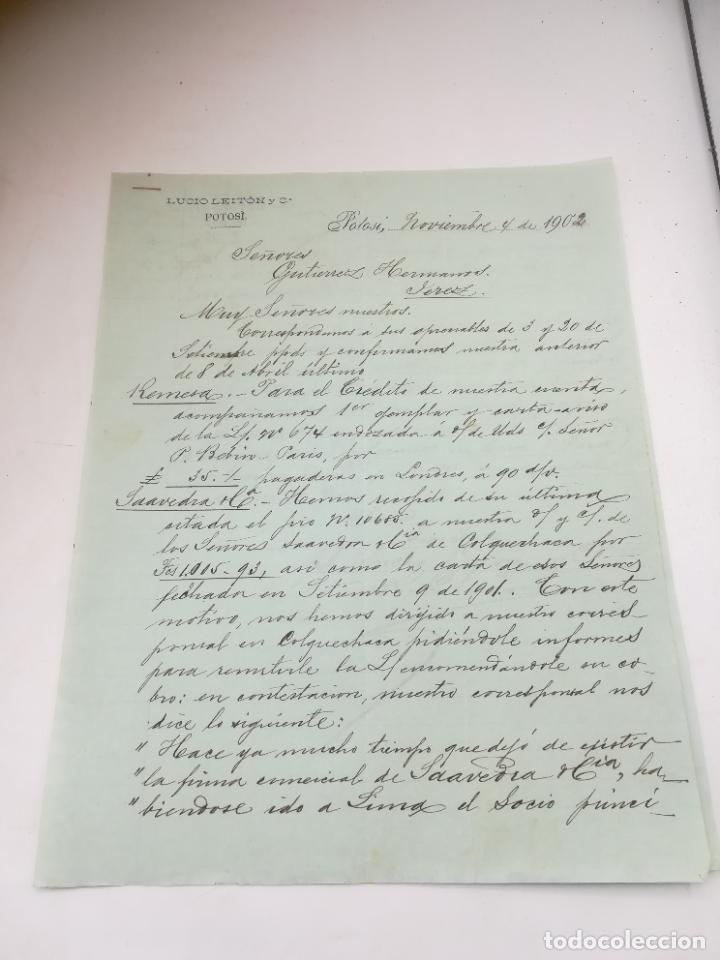 LUCIO LEITÓN y Cª
POTOSÍ.
Potosi, Noviembre 4 de 1902
Señores
Gutierrez Hermanos.
Jerez.
Muy Señores nuestros.
Correspondemos á sus apreciables de 3 y 20 de
Setiembre ppdo y confirmamos nuestra anterior
de 8 de Abril último
Remesa.- Para el Crédito de nuestra cuenta,
acompañamos 1er ejemplar y carta-aviso
de la L/. Nº 674 endozada á o/ de Uds c/. Señor
P. Paris, por
£ 35.-/- pagaderas en Londres, á 90 d/v.
Saavedra &Cª.- Hemos recojido de su última
citada el giro Nº. 10685. a nuestra o/ y c/. de
los Señores Saavedra &Cia de Colquechaca por
Fcs 1.015-93, así como la carta de esos Señores
fechador en Setiembre 9 de 1901. Con este
motivo, nos hemos dirijido a nuestro corres-
ponsal en Colquechaca pidiéndole informes
para remitirle la L/ encomendándole su co-
bro: en contestacion, nuestro corresponsal nos
dice lo siguiente:
" Hace ya mucho tiempo que dejó de existir
" la firma comercial de Saavedra &Cia, ha-
" biendose ido a Lima el Socio princi-
todocoleccion
todocoleccion.net